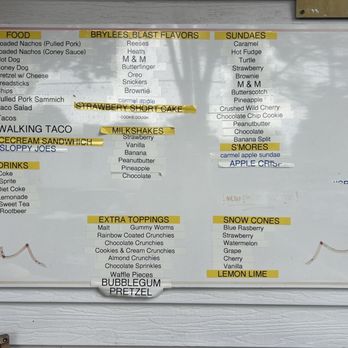 FOOD
oaded Nachos (Pulled Pork)
oaded Nachos (Coney Sauce)
Hot Dog
oney Dog
retzel w/ Cheese
readsticks
hips
ulled Pork Sammich
aco Salad
acos
WALKING TACO
ICECREAM SANDWHICH
SLOPPY JOES
DRINKS
Coke
Sprite
Diet Coke
Lemonade
Sweet Tea
Rootbeer
BRYLEES BLAST FLAVORS
Reeses
Heath
M & M
Butterfinger
Oreo
Snickers
Brownie
carmel apple
STRAWBERRY SHORT CAKE
COOKIE DOUGH
MILKSHAKES
Strawberry
Vanilla
Banana
Peanutbutter
Pineapple
Chocolate
SUNDAES
Caramel
Hot Fudge
Turtle
Strawberry
Brownie
M & M
Butterscotch
Pineapple
Crushed Wild Cherry
Chocolate Chip Cookie
Peanutbutter
Chocolate
Banana Split
S'MORES
carmel apple sundae
APPLE CRISP
EXTRA TOPPINGS
Malt Gummy Worms
Rainbow Coated Crunchies
Chocolate Crunchies
Cookies & Cream Crunchies
Almond Crunchies
Chocolate Sprinkles
Waffle Pieces
BUBBLEGUM
PRETZEL
SNOW CONES
Blue Rasberry
Strawberry
Watermelon
Grape
Cherry
Vanilla
LEMON LIME